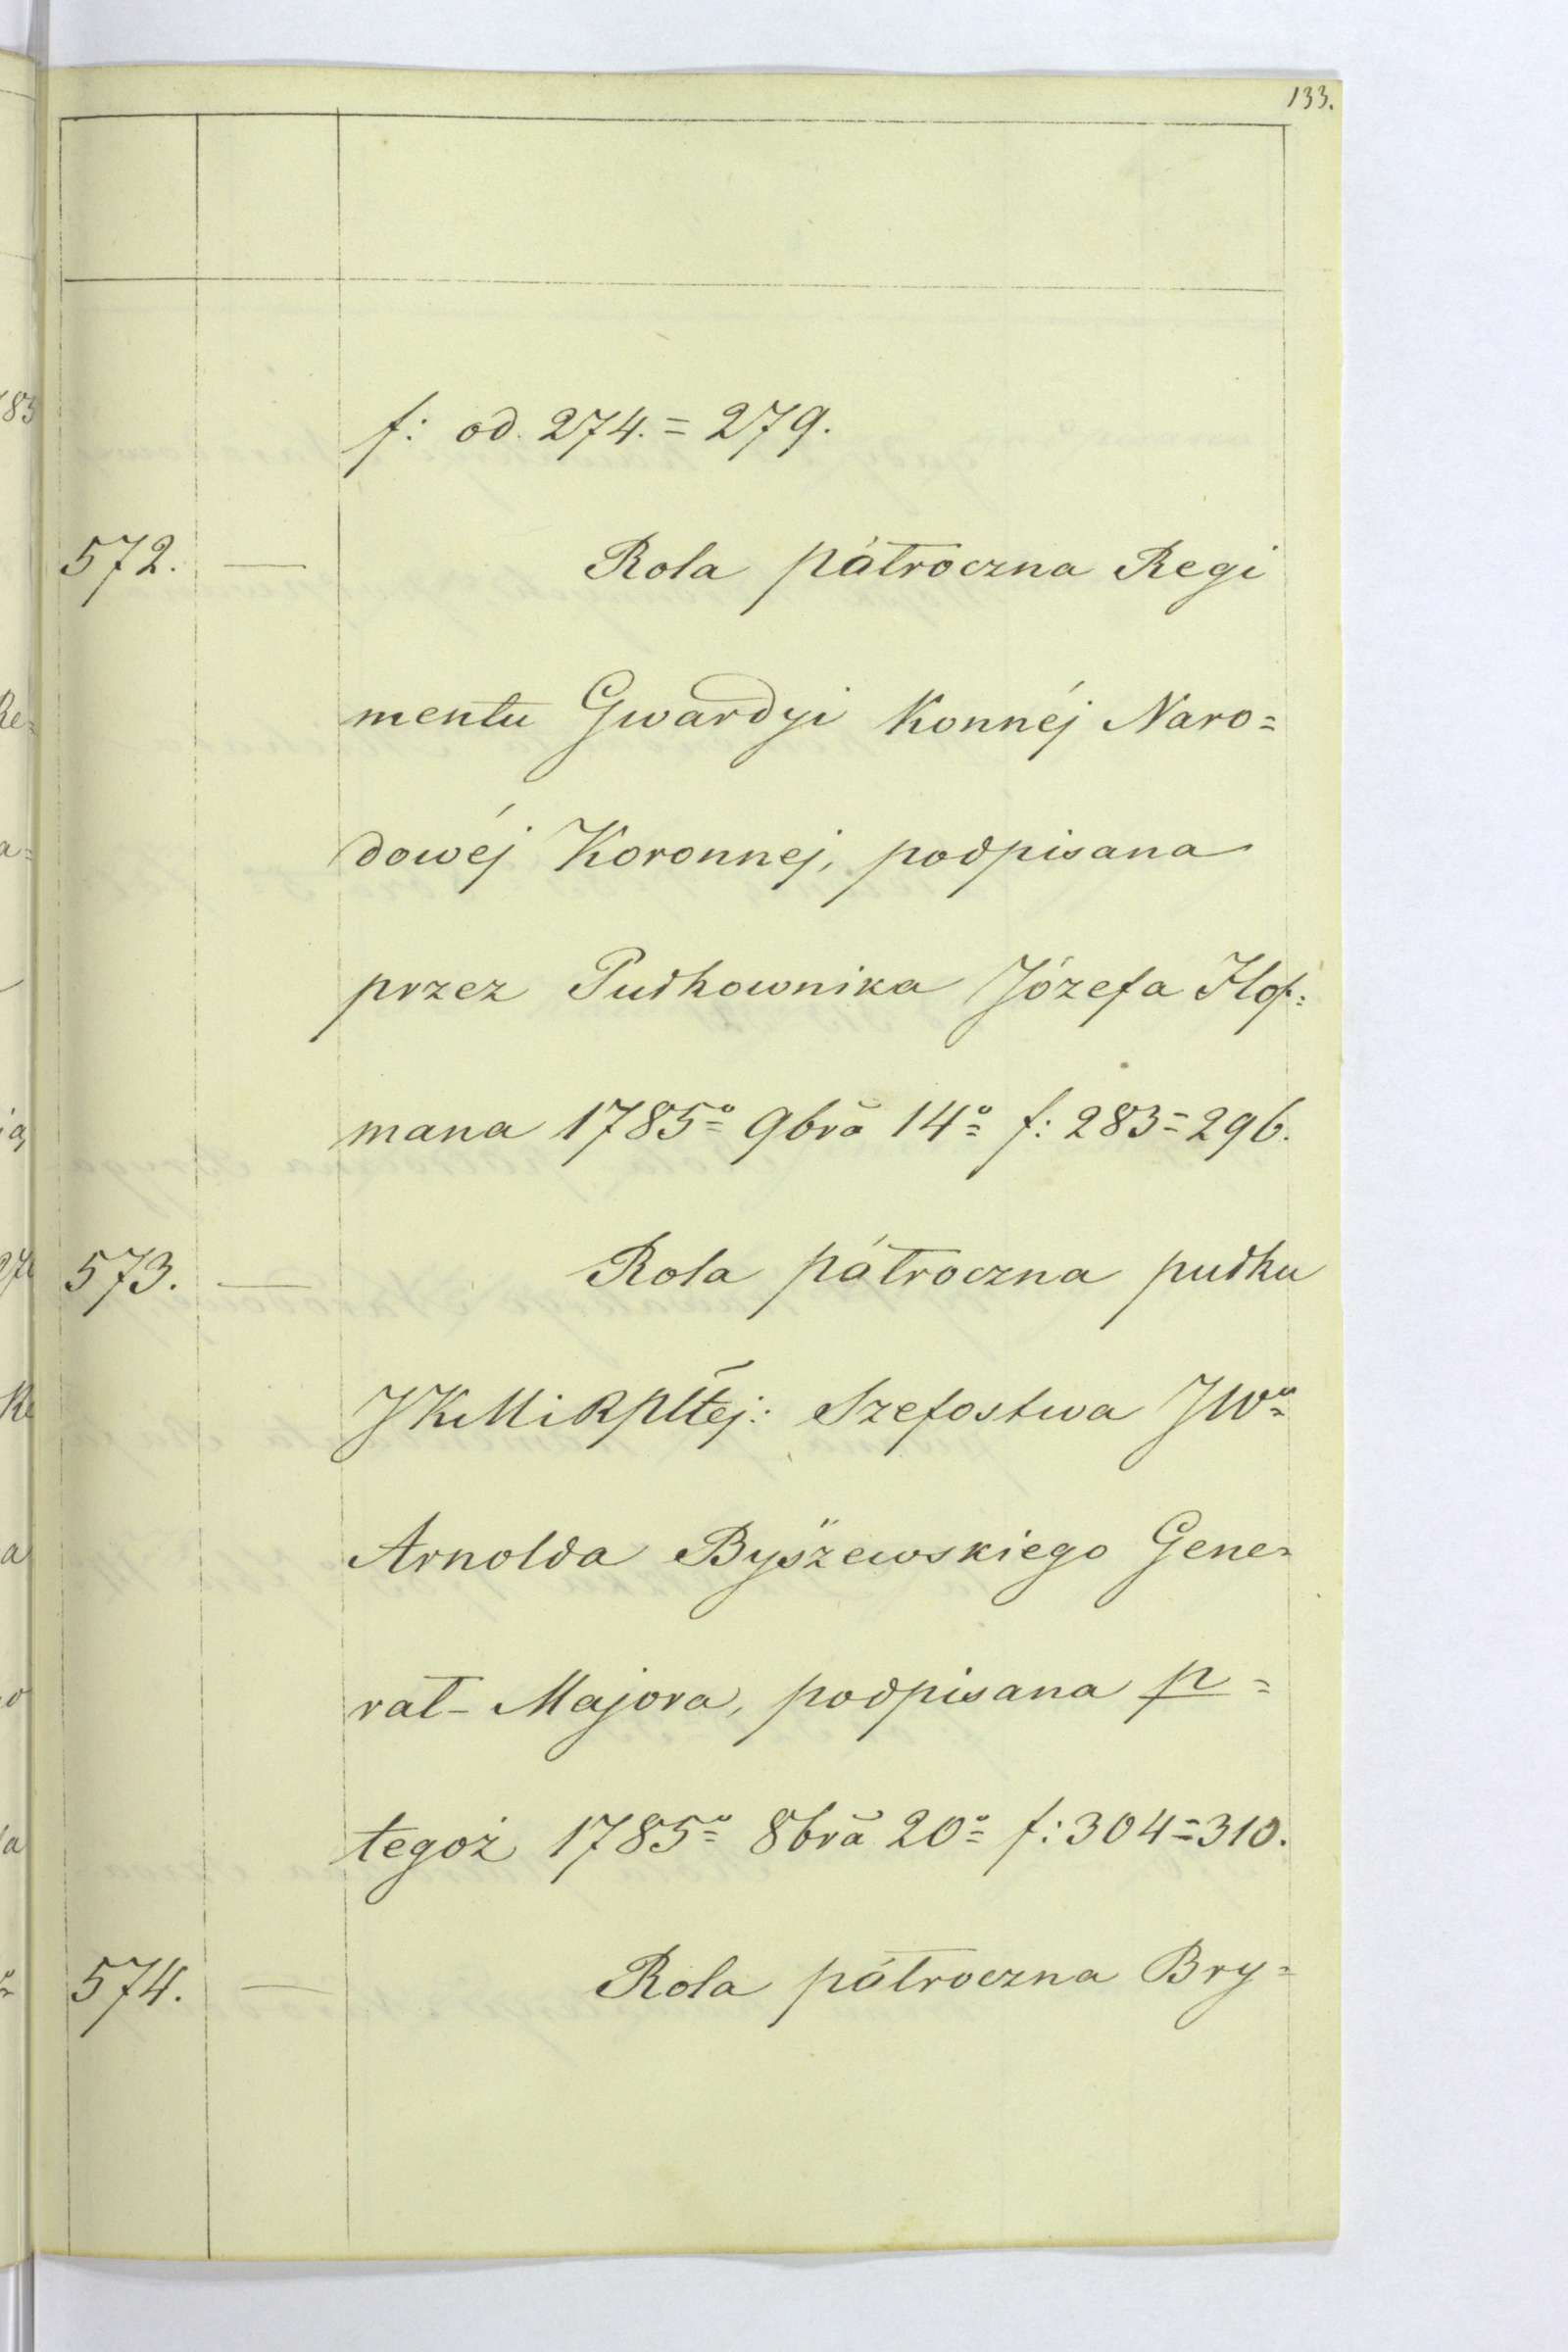 133.
f: od. 274. = 279.
572. — Rola półroczna Regi
mentu Gwardyi Konnéj Naro=
dowéj Koronnej, podpisana
przez Pułkownika Józefa Hof=
mana 1785º 9brã 14º f: 283=296.
573. — Rola półroczna pułku
JKMi Rpltéj: Szefostwa JWº
Arnolda Byszewskiego Gene=
rał-Majora, podpisana p =
tegoż 1785º 8brã 20º f: 304=310.
574. — Rola półroczna Bry=